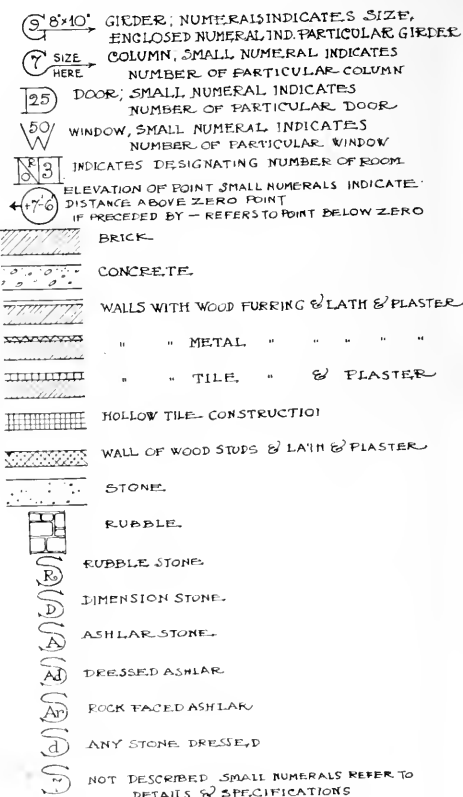 9 8"x10" GIRDER; NUMERALS INDICATES SIZE,
ENCLOSED NUMERAL IND. PARTICULAR GIRDER
7 SIZE HERE COLUMN, SMALL NUMERAL INDICATES
NUMBER OF PARTICULAR COLUMN
25 DOOR; SMALL NUMERAL INDICATES
NUMBER OF PARTICULAR DOOR
50 W WINDOW, SMALL NUMERAL INDICATES
NUMBER OF PARTICULAR WINDOW
NRO 3 INDICATES DESIGNATING NUMBER OF ROOM
ELEVATION OF POINT SMALL NUMERALS INDICATE
+7'-6" DISTANCE ABOVE ZERO POINT
IF PRECEDED BY — REFERS TO POINT BELOW ZERO
BRICK
CONCRETE
WALLS WITH WOOD FURRING & LATH & PLASTER
" " METAL " " " " "
" " TILE " & PLASTER
HOLLOW TILE CONSTRUCTIO
WALL OF WOOD STUDS & LATH & PLASTER
STONE
RUBBLE
R RUBBLE STONE
D DIMENSION STONE
A ASHLAR STONE
Ad DRESSED ASHLAR
Ar ROCK FACED ASHLAR
d ANY STONE DRESSED
? NOT DESCRIBED SMALL NUMERALS REFER TO
DETAILS & SPECIFICATIONS